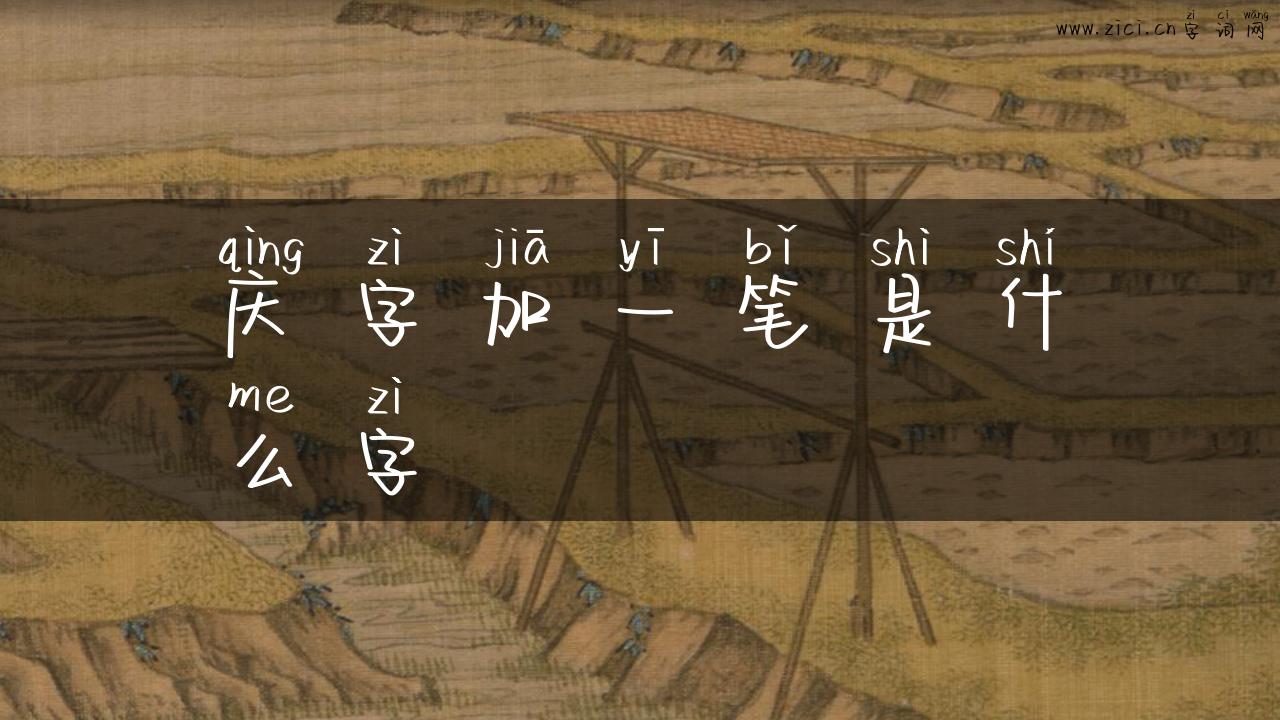 zì cí wǎng
www.zici.cn 字 词 网
qìng zì jiā yī bǐ shì shí
庆 字 加 一 笔 是 什
me zì
么 字